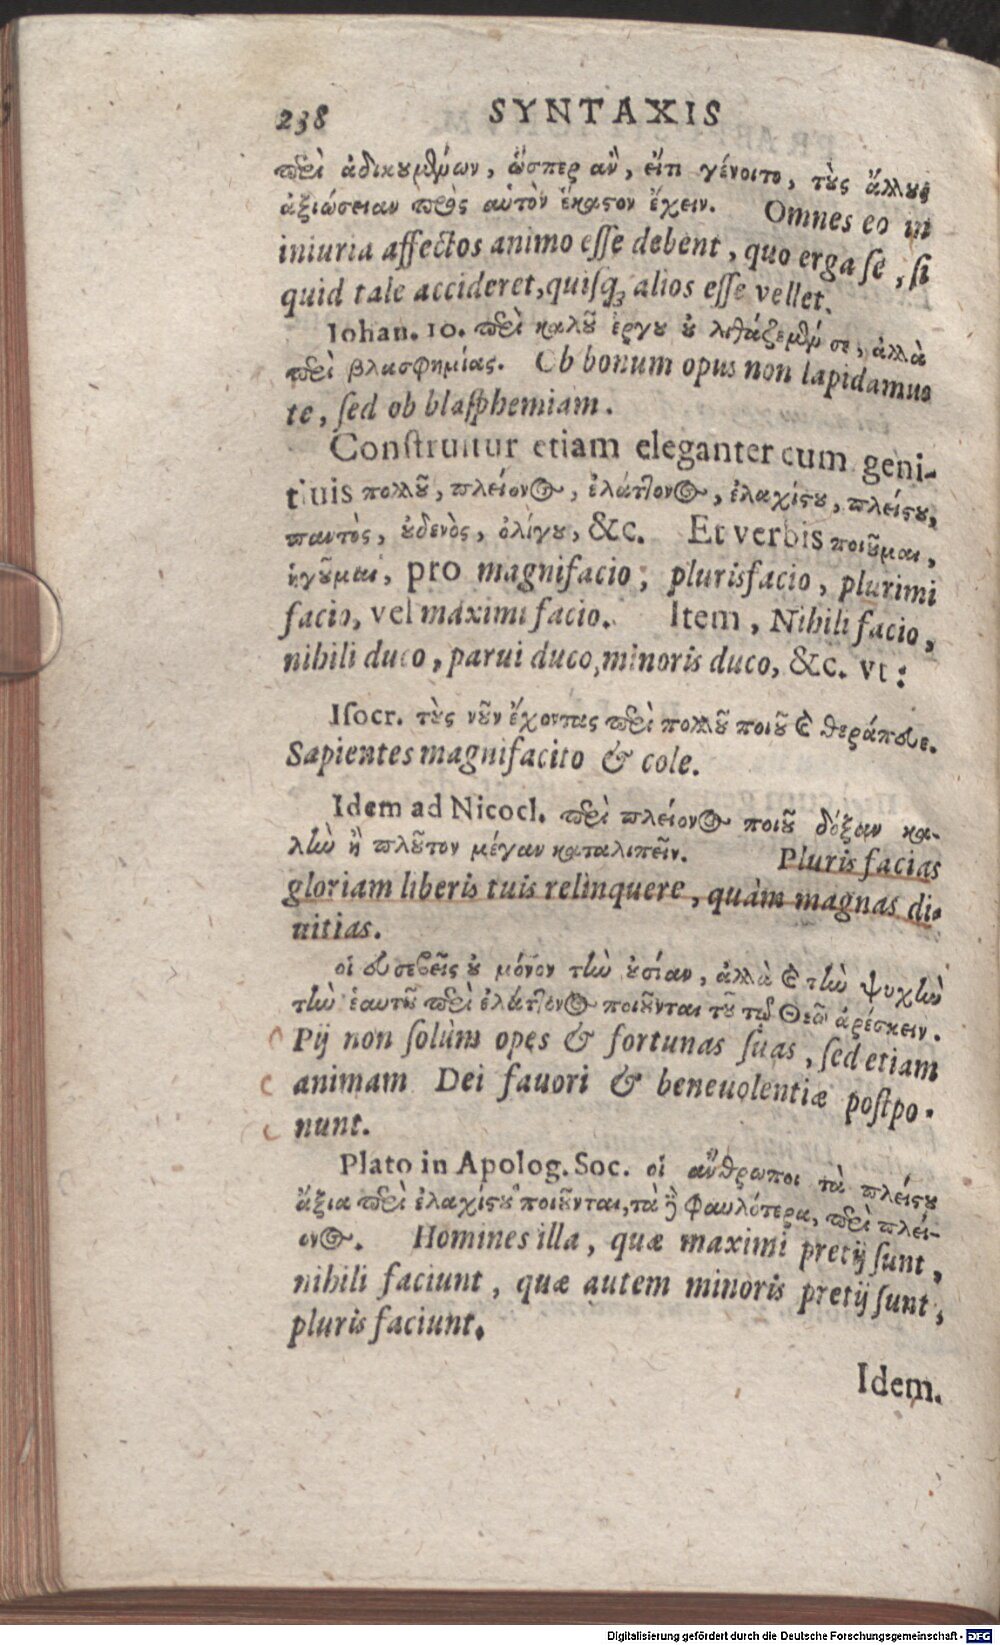 238 SYNTAXIS
περὶ ἀδικουμένων, ὥσπερ ἂν, εἴ τι γένοιτο, τοὺς ἄλλους
ἀξιώσειαν πρὸς αὑτὸν ἕκαστον ἔχειν. Omnes eo in
iniuria affectos animo eſſe debent, quo erga ſe, ſi
quid tale accideret, quiſq; alios eſſe vellet.
Iohan. 10. περὶ καλοῦ ἔργου οὐ λιθάζομέν σε, ἀλλὰ
περὶ βλασφημίας. Ob bonum opus non lapidamus
te, ſed ob blaſphemiam.
Conſtruitur etiam eleganter cum geni-
tiuis πολλοῦ, πλείονος, ἐλάττονος, ἐλαχίστου, πλείστου,
παντὸς, οὐδενὸς, ὀλίγου, &c. Et verbis ποιοῦμαι,
ἡγοῦμαι, pro magnifacio, plurisfacio, plurimi
facio, vel maximi facio. Item, Nihili facio,
nihili duco, parui duco, minoris duco, &c. vt:
Iſocr. τοὺς νοῦν ἔχοντας περὶ πολλοῦ ποιοῦ καὶ θεράπευε.
Sapientes magnifacito & cole.
Idem ad Nicocl. περὶ πλείονος ποιοῦ δόξαν κα-
λὴν ἢ πλοῦτον μέγαν καταλιπεῖν. Pluris facias
gloriam liberis tuis relinquere, quàm magnas di-
uitias.
οἱ εὐσεβεῖς οὐ μόνον τὴν οὐσίαν, ἀλλὰ καὶ τὴν ψυχὴν
τὴν ἑαυτῶν περὶ ἐλάττονος ποιοῦνται τοῦ τῷ Θεῷ ἀρέσκειν.
Pij non ſolùm opes & fortunas ſuas, ſed etiam
animam Dei fauori & beneuolentiæ poſtpo-
nunt.
Plato in Apolog. Soc. οἱ ἄνθρωποι τὰ πλείστου
ἄξια περὶ ἐλαχίστου ποιοῦνται, τὰ δὲ φαυλότερα, περὶ πλεί-
ονος. Homines illa, quæ maximi pretij ſunt,
nihili faciunt, quæ autem minoris pretij ſunt,
pluris faciunt.
Idem.
Digitalisierung gefördert durch die Deutsche Forschungsgemeinschaft - DFG